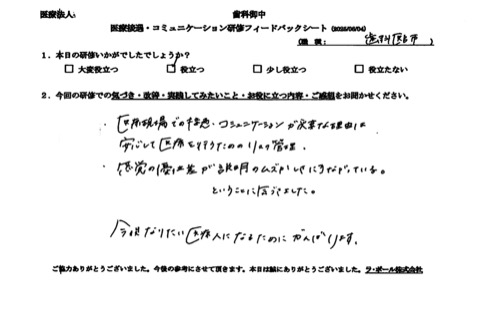 医療法人: 歯科御中
医療接遇・コミュニケーション研修フィードバックシート (2025/06/04)
(職種: 歯科医師 )
1．本日の研修いかがでしたでしょうか?
□ 大変役立つ □ 役立つ □ 少し役立つ □ 役立たない
2．今回の研修での気づき・改善・実践してみたいこと・お役に立つ内容・ご感想をお聞かせください。
・医療現場での接遇・コミュニケーションが大事な理由は
安心して医療を行うためのリスク管理。
・感覚の優位差が説明のムズかしさにつながっている。
ということに気づきました。
今後なりたい医療人になるためにがんばります。
ご協力ありがとうございました。今後の参考にさせて頂きます。本日は誠にありがとうございました。ラ・ポール株式会社